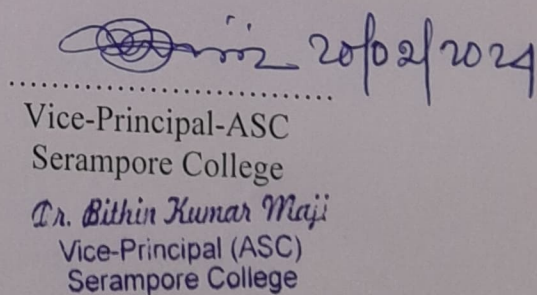 20/02/2024
................................
Vice-Principal-ASC
Serampore College
Dr. Bithin Kumar Maji
Vice-Principal (ASC)
Serampore College